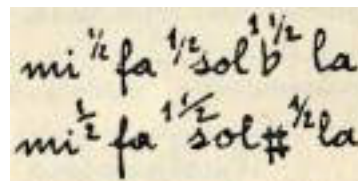 mi 1/2 fa 1/2 sol 1 b 1/2 la
mi 1/2 fa 1 1/2 sol # 1/2 la